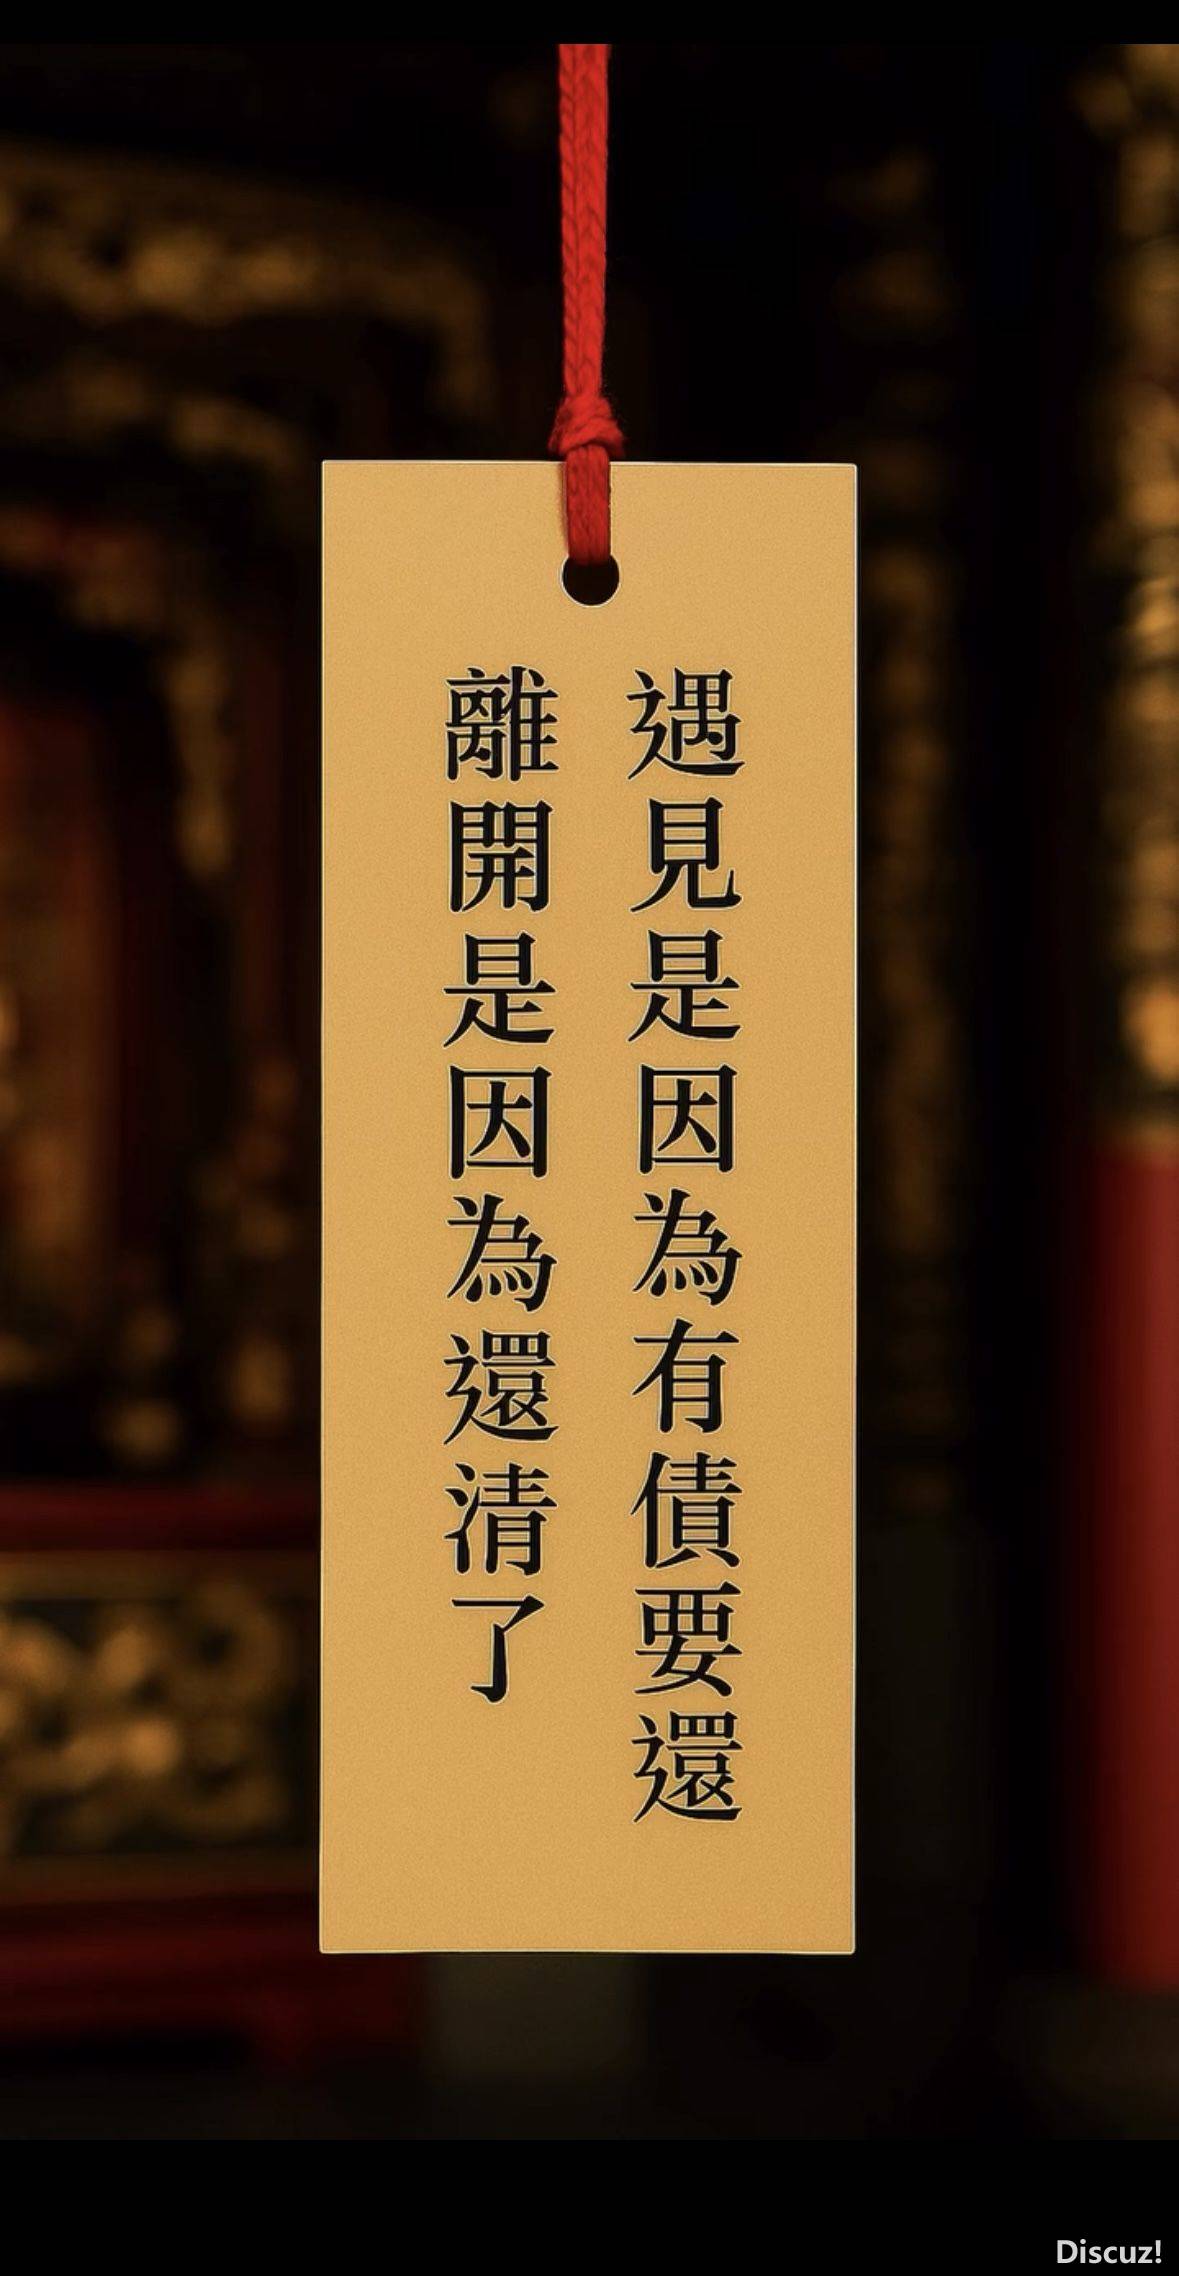 遇見是因為有債要還
離開是因為還清了
Discuz!